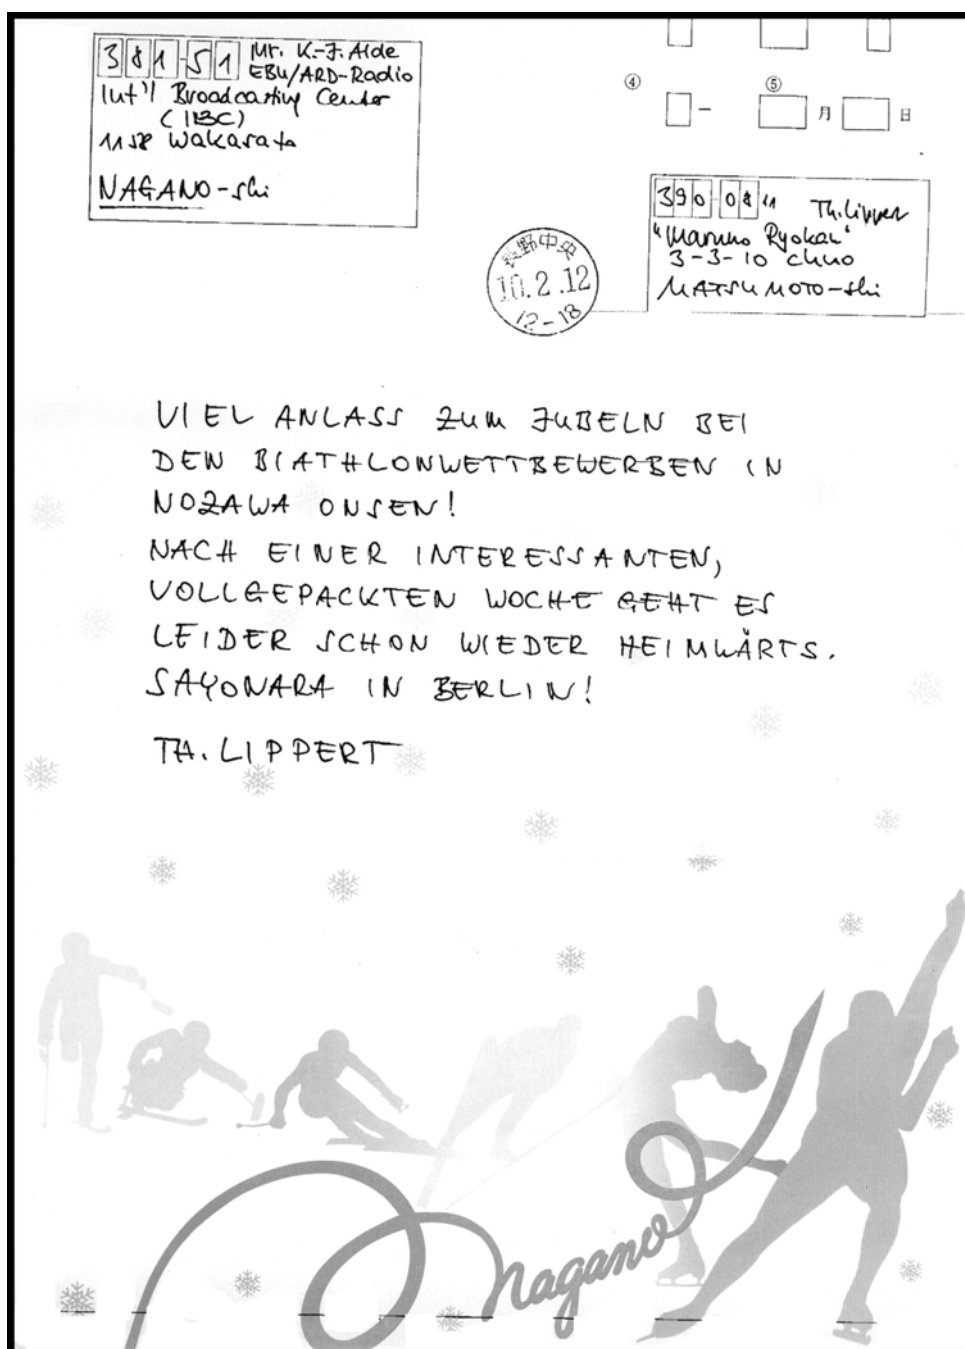 381-51 Mr. K.-J. Alde
EBU/ARD-Radio
Int'l Broadcasting Center
(IBC)
1158 Wakasato
NAGANO-shi
④ ⑤
月 日
390-0811 Th. Lippert
"Marumo Ryokan"
3-3-10 Chuo
MATSUMOTO-shi
長野中央
10.2.12
12-18
VIEL ANLASS ZUM JUBELN BEI
DEN BIATHLONWETTBEWERBEN IN
NOZAWA ONSEN!
NACH EINER INTERESSANTEN,
VOLLGEPACKTEN WOCHE GEHT ES
LEIDER SCHON WIEDER HEIMWÄRTS.
SAYONARA IN BERLIN!
TH. LIPPERT
Nagano